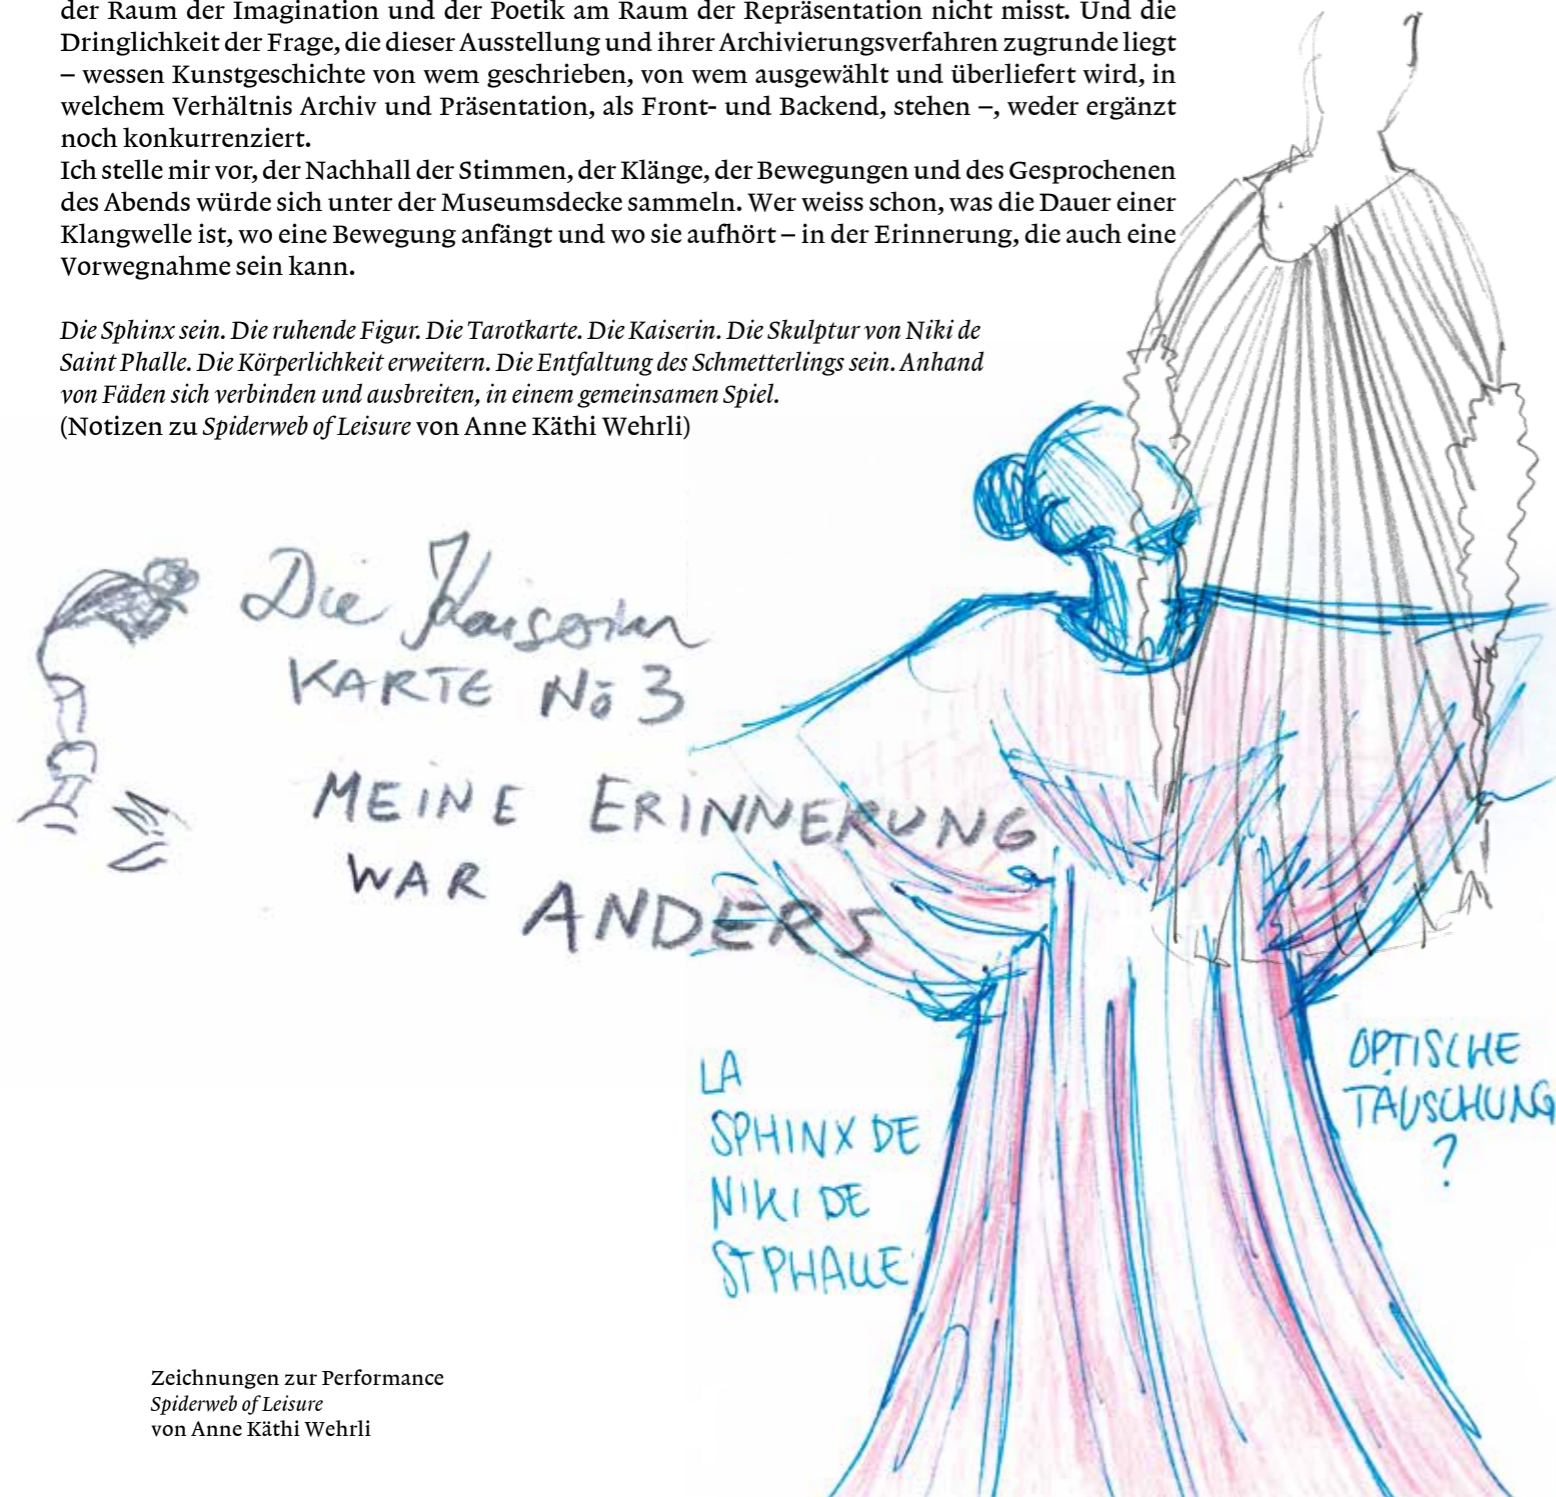 der Raum der Imagination und der Poetik am Raum der Repräsentation nicht misst. Und die
Dringlichkeit der Frage, die dieser Ausstellung und ihrer Archivierungsverfahren zugrunde liegt
– wessen Kunstgeschichte von wem geschrieben, von wem ausgewählt und überliefert wird, in
welchem Verhältnis Archiv und Präsentation, als Front- und Backend, stehen –, weder ergänzt
noch konkurrenziert.
Ich stelle mir vor, der Nachhall der Stimmen, der Klänge, der Bewegungen und des Gesprochenen
des Abends würde sich unter der Museumsdecke sammeln. Wer weiss schon, was die Dauer einer
Klangwelle ist, wo eine Bewegung anfängt und wo sie aufhört – in der Erinnerung, die auch eine
Vorwegnahme sein kann.
Die Sphinx sein. Die ruhende Figur. Die Tarotkarte. Die Kaiserin. Die Skulptur von Niki de
Saint Phalle. Die Körperlichkeit erweitern. Die Entfaltung des Schmetterlings sein. Anhand
von Fäden sich verbinden und ausbreiten, in einem gemeinsamen Spiel.
(Notizen zu Spiderweb of Leisure von Anne Käthi Wehrli)
Die Kaiserin
KARTE No 3
MEINE ERINNERUNG
WAR ANDERS
LA
SPHINX DE
NIKI DE
ST PHALLE
OPTISCHE
TÄUSCHUNG
?
Zeichnungen zur Performance
Spiderweb of Leisure
von Anne Käthi Wehrli